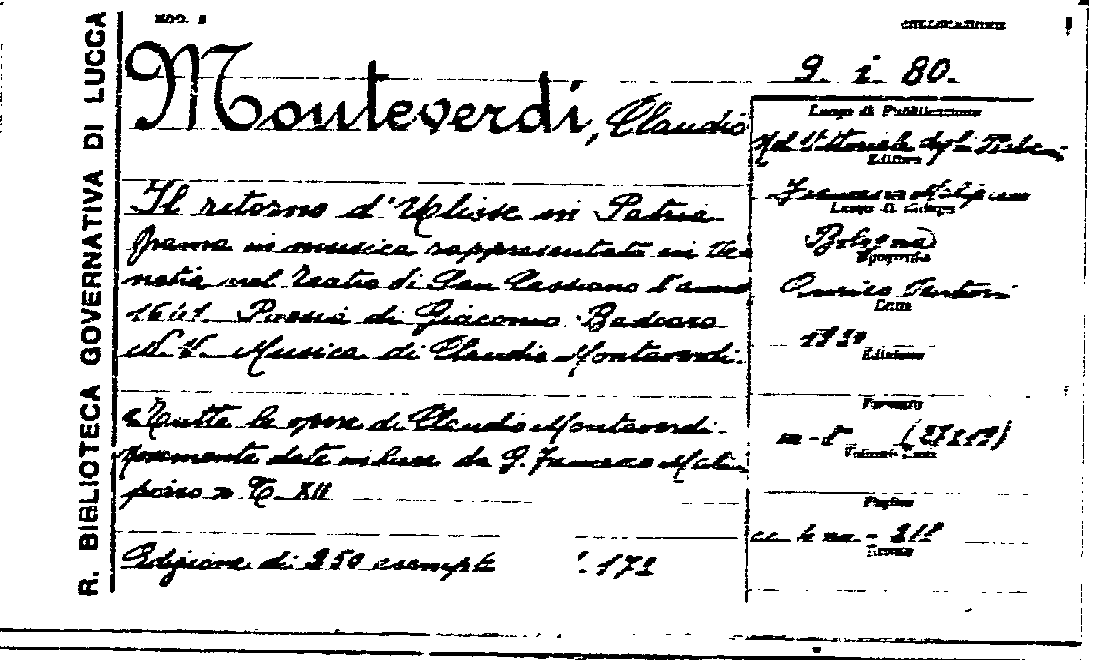 R. BIBLIOTECA GOVERNATIVA DI LUCCA
MOD. 
COLLOCAZIONE
9 i 80.
Monteverdi, Claudio
Il retorno d'Ulisse in Patria
in musica rappresentato in Ve
netia nel Teatro di San Cassiano l'anno
1641. Poesia di Giacomo Badoaro
N. V. Musica di Claudio Monteverdi.
«Tutte le opere di Claudio Monteverdi.
date in luce da G. Francesco Mali
piero» T. XII
Edizione di 250 esempl. 171
Luogo di Pubblicazione
Nel Vittoriale degli
Editore
Francesco Malipiero
Luogo di stampa
Bologna
Tipografia
Enrico
Data
1930
Edizione
Formato
in-8°
Pagine